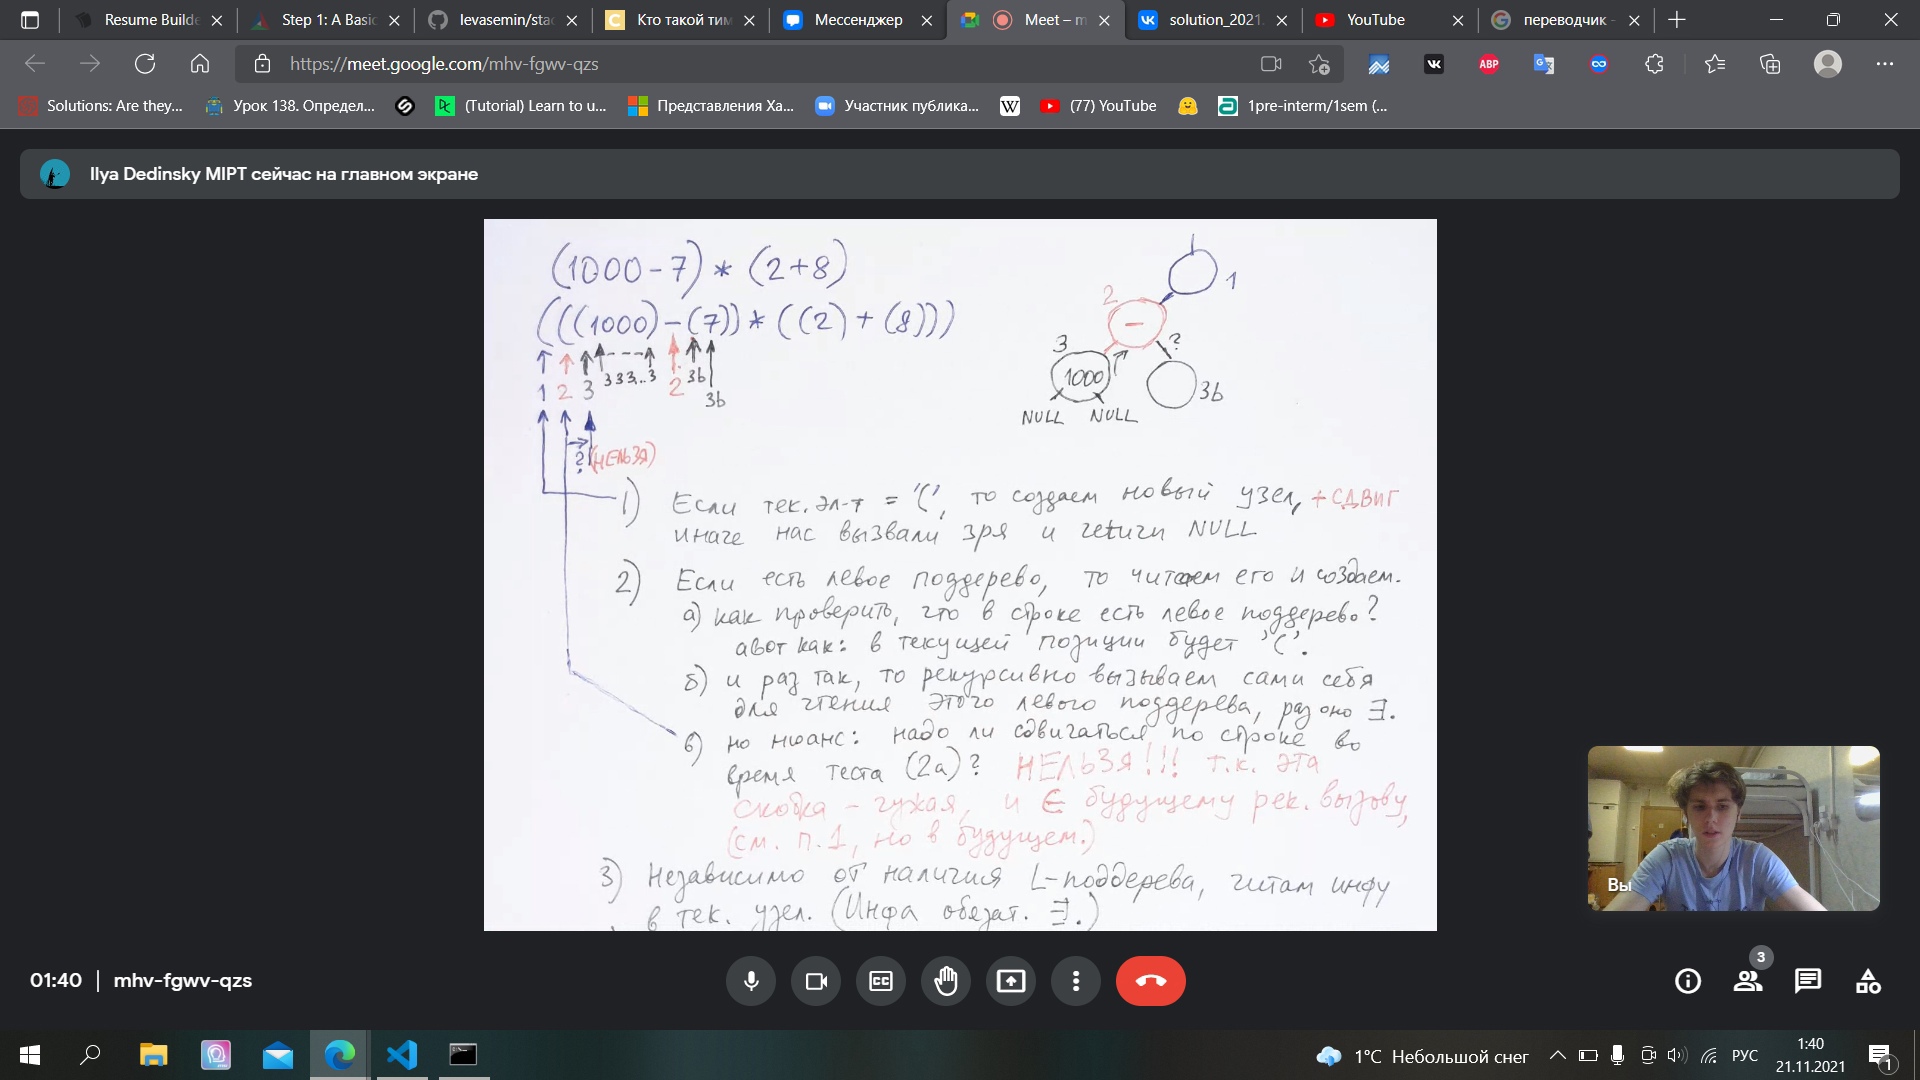 Resume Builde
Step 1: A Basic
levasemin/stac
Кто такой тим
Мессенджер
Meet – m
solution_2021.
YouTube
переводчик -
https://meet.google.com/mhv-fgwv-qzs
Solutions: Are they...
Урок 138. Определ...
(Tutorial) Learn to u...
Представления Ха...
Участник публика...
(77) YouTube
1pre-interm/1sem (...
Ilya Dedinsky MIPT сейчас на главном экране
(1000-7) * (2+8)
(((1000)-(7))*((2)+(8)))
1 2 3 3 3 3...3 2 3b
3b
? (НЕЛЬЗЯ)
1
2
-
3
?
1000
3b
NULL NULL
1) Если тек. эл-т = '(', то создаем новый узел, + СДВИГ
иначе нас вызвали зря и return NULL
2) Если есть левое поддерево, то читаем его и создаем.
а) как проверить, что в строке есть левое поддерево?
а вот как: в текущей позиции будет '('.
б) и раз так, то рекурсивно вызываем сами себя
для чтения этого левого поддерева, раз оно ∃.
в) но нюанс: надо ли сдвигаться по строке во
время теста (2а)? НЕЛЬЗЯ!!! т.к. эта
скобка - чужая, и ∈ будущему рек. вызову,
(см. п.1, но в будущем.)
3) Независимо от наличия L-поддерева, читам инфу
в тек. узел. (Инфа обязат. ∃.)
Вы
01:40 | mhv-fgwv-qzs
3
1°C Небольшой снег
РУС
1:40
21.11.2021
1